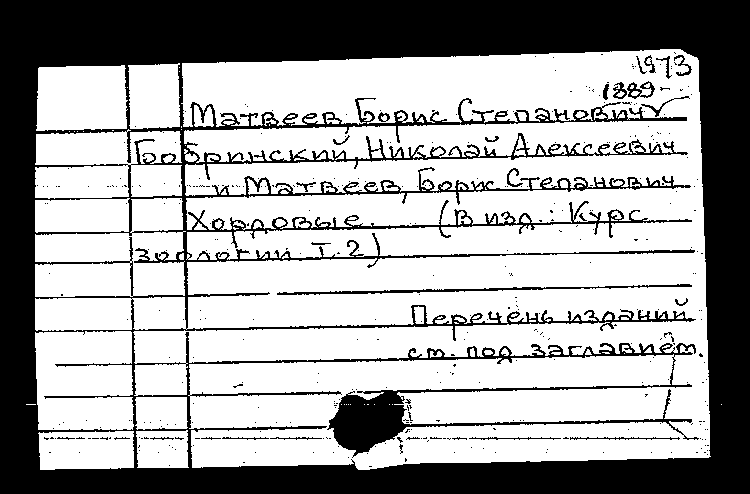 1973
1889-
Матвеев, Борис Степанович
Бобринский, Николай Алексеевич
и Матвеев, Борис Степанович
Хордовые. (В изд.: Курс
зоологии Т.2)
Перечень изданий
см. под заглавием.